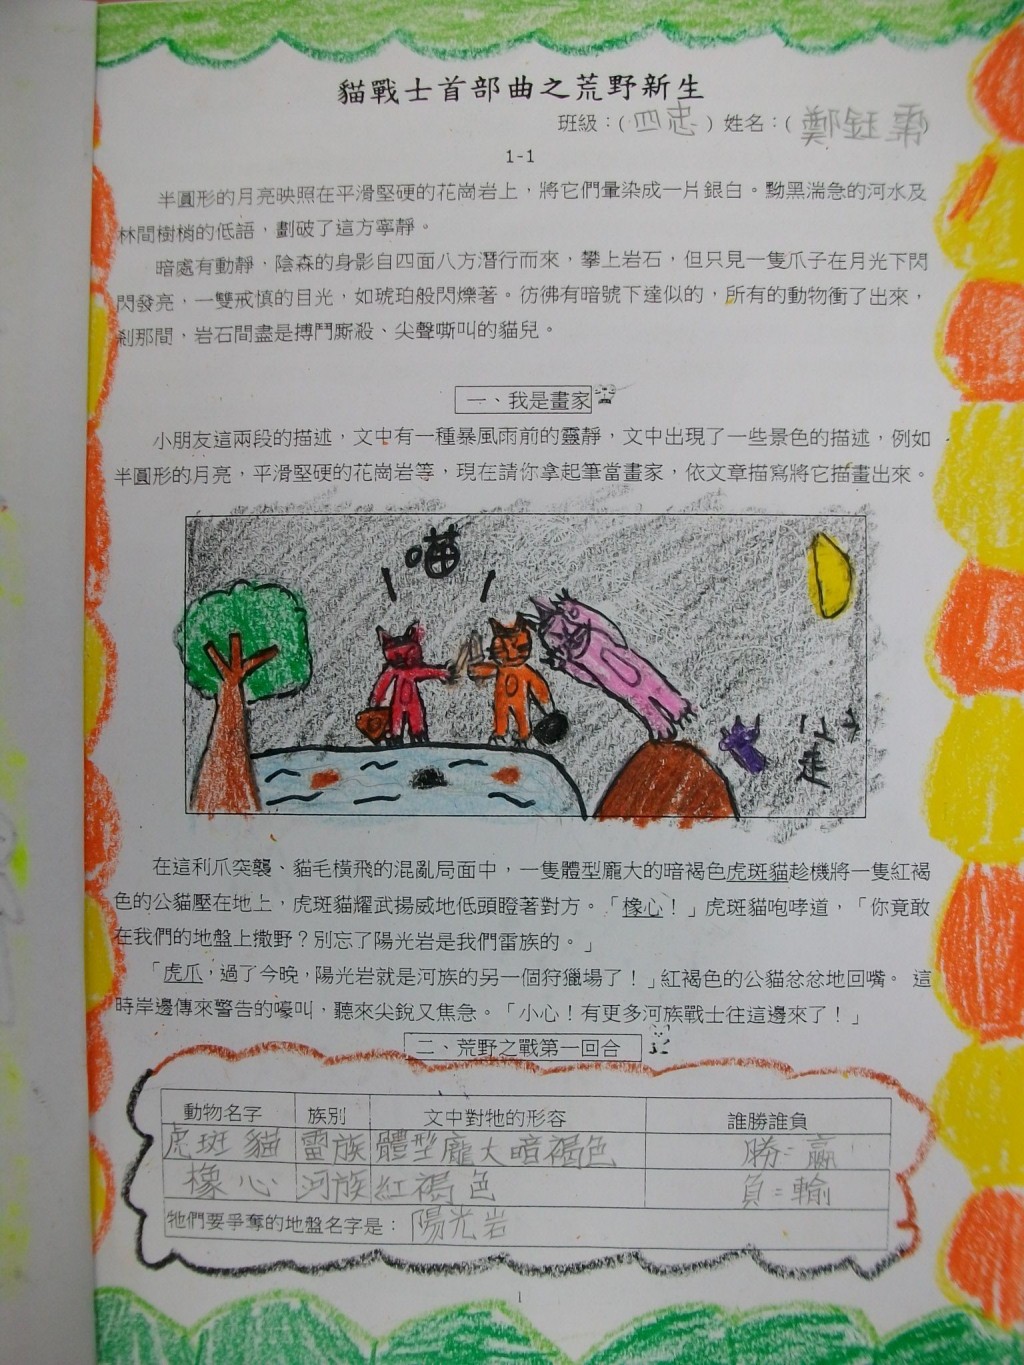 貓戰士首部曲之荒野新生
班級：( 四忠 ) 姓名：( 鄭鈺霈 )
1-1
半圓形的月亮映照在平滑堅硬的花崗岩上，將它們暈染成一片銀白。黝黑湍急的河水及
林間樹梢的低語，劃破了這方寧靜。
暗處有動靜，陰森的身影自四面八方潛行而來，攀上岩石，但只見一隻爪子在月光下閃
閃發亮，一雙戒慎的目光，如琥珀般閃爍著。彷彿有暗號下達似的，所有的動物衝了出來，
剎那間，岩石間盡是搏鬥廝殺、尖聲嘶叫的貓兒。
一、我是畫家
小朋友這兩段的描述，文中有一種暴風雨前的靈靜，文中出現了一些景色的描述，例如
半圓形的月亮，平滑堅硬的花崗岩等，現在請你拿起筆當畫家，依文章描寫將它描畫出來。
喵
走
在這利爪突襲、貓毛橫飛的混亂局面中，一隻體型龐大的暗褐色虎斑貓趁機將一隻紅褐
色的公貓壓在地上，虎斑貓耀武揚威地低頭瞪著對方。「橡心！」虎斑貓咆哮道，「你竟敢
在我們的地盤上撒野？別忘了陽光岩是我們雷族的。」
「虎爪，過了今晚，陽光岩就是河族的另一個狩獵場了！」紅褐色的公貓忿忿地回嘴。 這
時岸邊傳來警告的嚎叫，聽來尖銳又焦急。「小心！有更多河族戰士往這邊來了！」
二、荒野之戰第一回合
動物名字 族別 文中對牠的形容 誰勝誰負
虎斑貓 雷族 體型龐大暗褐色 勝=贏
橡心 河族 紅褐色 負=輸
牠們要爭奪的地盤名字是： 陽光岩
1